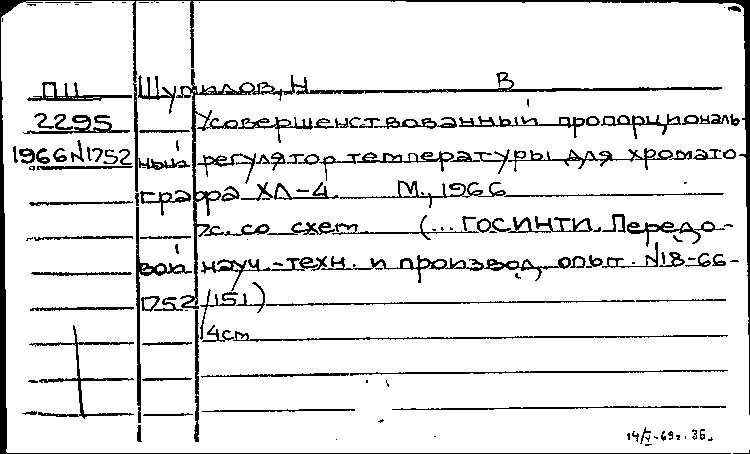 П11 Шупилов, Н В
2295 Усовершенствованный пропорциональ-
1966N1752 ный регулятор температуры для хромато-
графа ХЛ-4. М., 1966
7с. со схем (... ГОСИНТИ. Передо-
вой науч.-техн. и производ. опыт. N18-66-
1752/151)
14см
14/V-69г. 35.